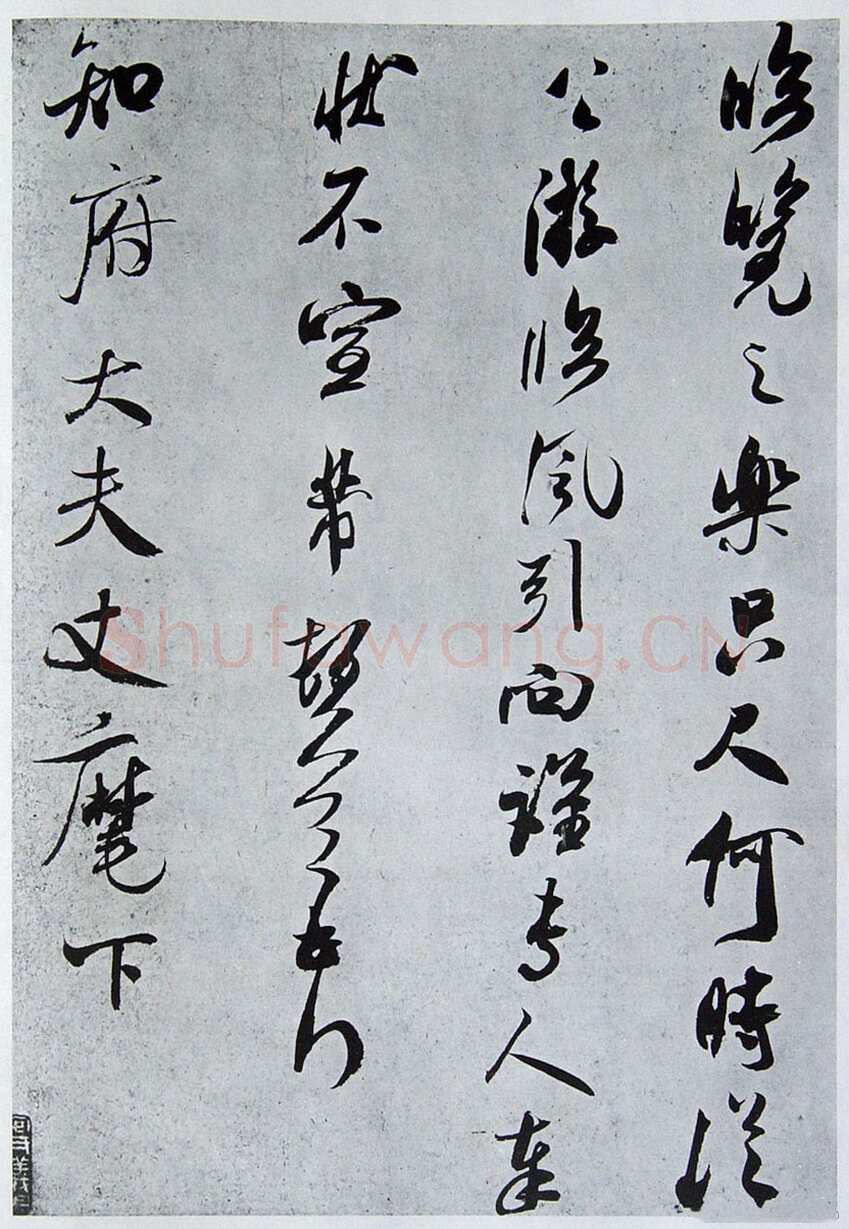 臨覽之樂只尺何時從
公游臨風引向謹專人奉
狀不宣芾頓首再拜
知府大夫丈麾下
Shufawang.CN